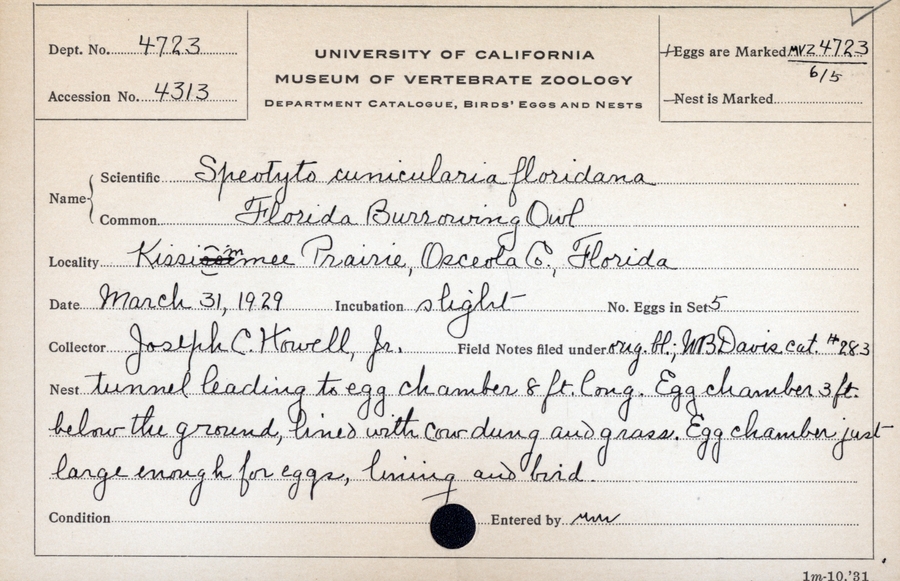 Dept. No. 4723
Accession No. 4313
UNIVERSITY OF CALIFORNIA
MUSEUM OF VERTEBRATE ZOOLOGY
DEPARTMENT CATALOGUE, BIRDS' EGGS AND NESTS
Eggs are Marked MVZ 4723
6/5
Nest is Marked
Name
Scientific Speotyto cunicularia floridana
Common Florida Burrowing Owl
Locality Kissimmee Prairie, Osceola Co., Florida
Date March 31, 1929 Incubation slight No. Eggs in Set 5
Collector Joseph C. Howell, Jr. Field Notes filed under orig. bl.; WB Davis cat. #283
Nest tunnel leading to egg chamber 8 ft. long. Egg chamber 3 ft.
below the ground, lined with cow dung and grass. Egg chamber just
large enough for eggs, lining and bird.
Condition Entered by
1m-10,'31